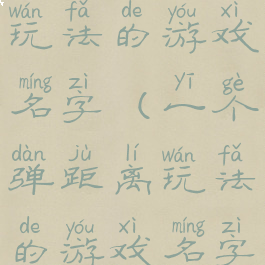 wán fǎ de yóu xì
玩法的游戏
míng zì yī gè
名字（一个
dàn jù lí wán fǎ
弹距离玩法
de yóu xì míng zì
的游戏名字